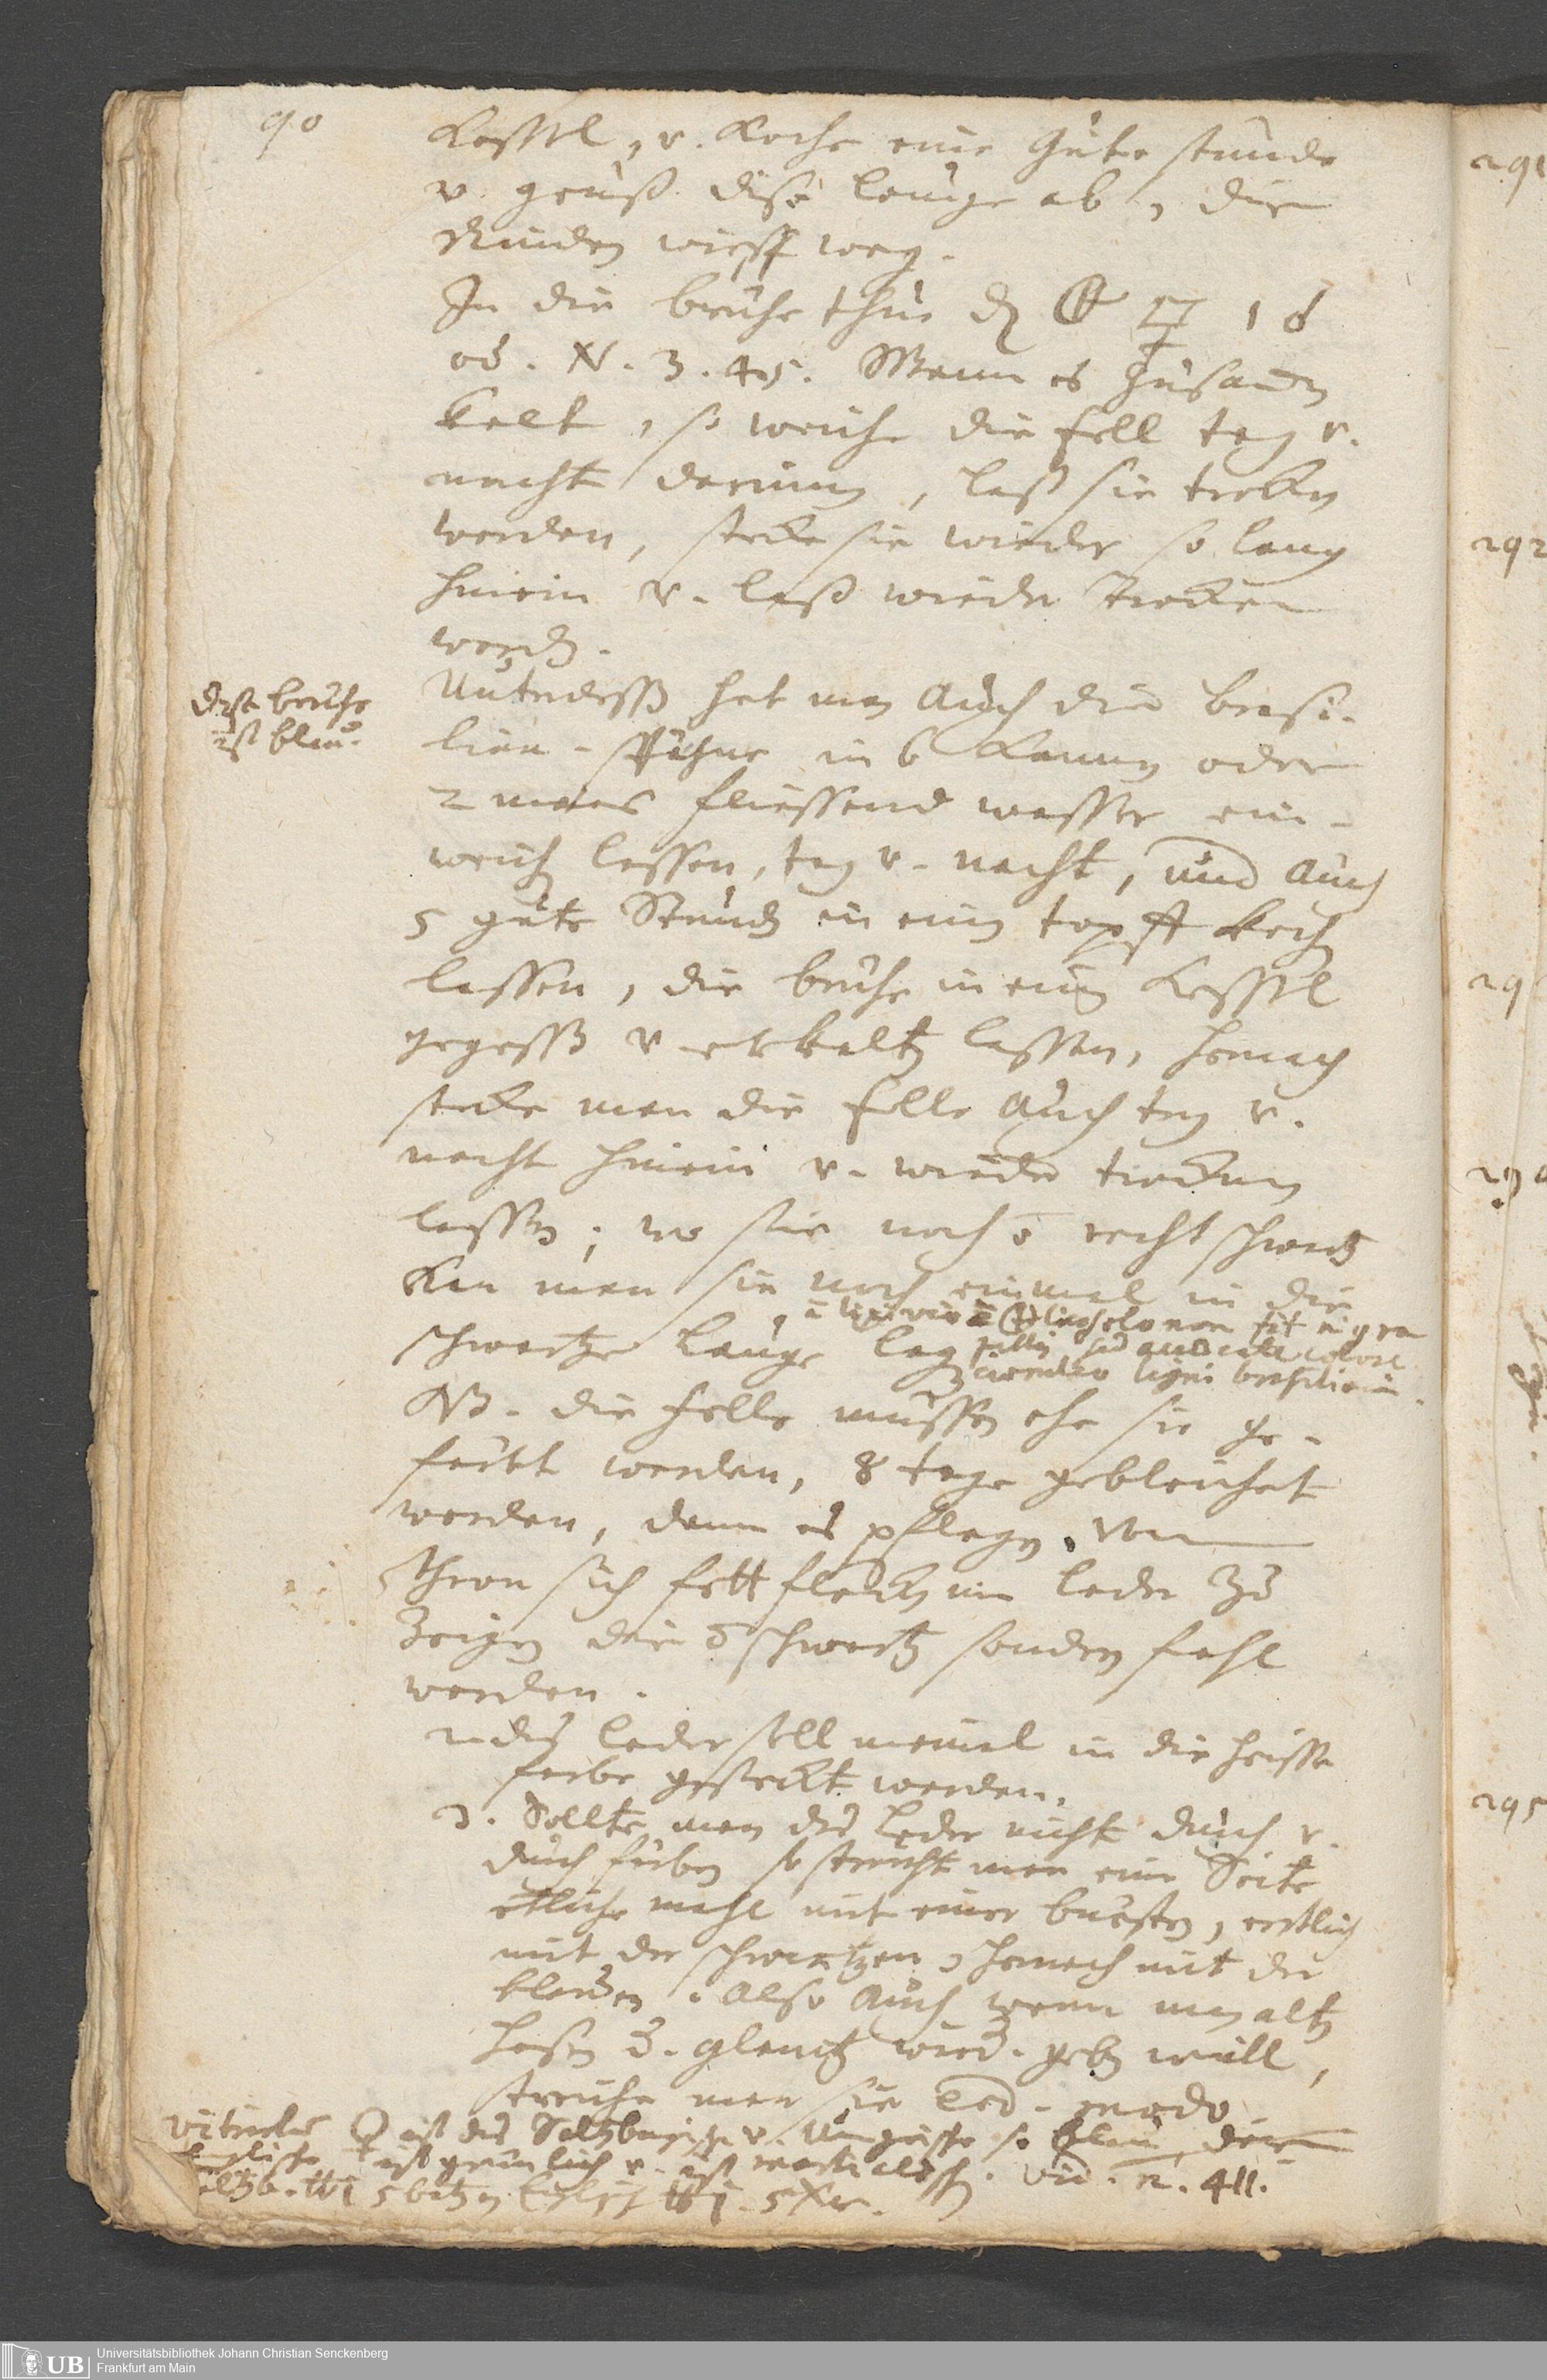 90
Kessel, v. Koche eine gute stunde
v. geuß diese lauge ab, die
Rinden wirff weg.
In die brühe thue
od. N. 3. 4. 5. Wann es
kalt, so weiche die fell tag v.
nacht darinnen, laß sie trocken
werden, stecke sie wieder so lang
hinein v. laß wieder trocken
werden.
Dise brühe
ist blau.
Unterdessen hat man auch die brasi-
lien-spähne in 6 Kannen oder
2 maas fliessend wasser ein-
weichen lassen, tag v. nacht, und auch
5 gute Stunden in einem topff kochen
lassen, die brühe in einen Kessel
gegossen v. erkalten lassen, hernach
stecke man die felle auch tag v.
nacht hinein v. wieder trocknen
lassen; wo sie noch recht schwartz
kan man sie noch einmal in die
schwartze lauge
NB. die felle müssen ehe sie ge-
färbt werden, 8 tage gebleichet
werden, dann es pflegen vom
Thran sich fettflecken im leder zu
zeigen die schwartz sondern fahl
werden.
2. das leder soll niemal in die heisse
farbe gesteckt werden.
3. Sollte man das leder nicht durch v.
durch färben so streicht man eine Seite
etliche mahl mit einer bürsten, erstlich
mit der schwartzen, hernach mit der
blauen. Also auch wenn man alten
hosen d. glantz wied. geben will,
streiche man sie eod. modo
ist das Saltzburgische v. Ungrische so blau, der
Englische ist grünlich v. ist martialisch. vid. n. 411.
291
292
29
295
Universitätsbibliothek Johann Christian Senckenberg
Frankfurt am Main
UB